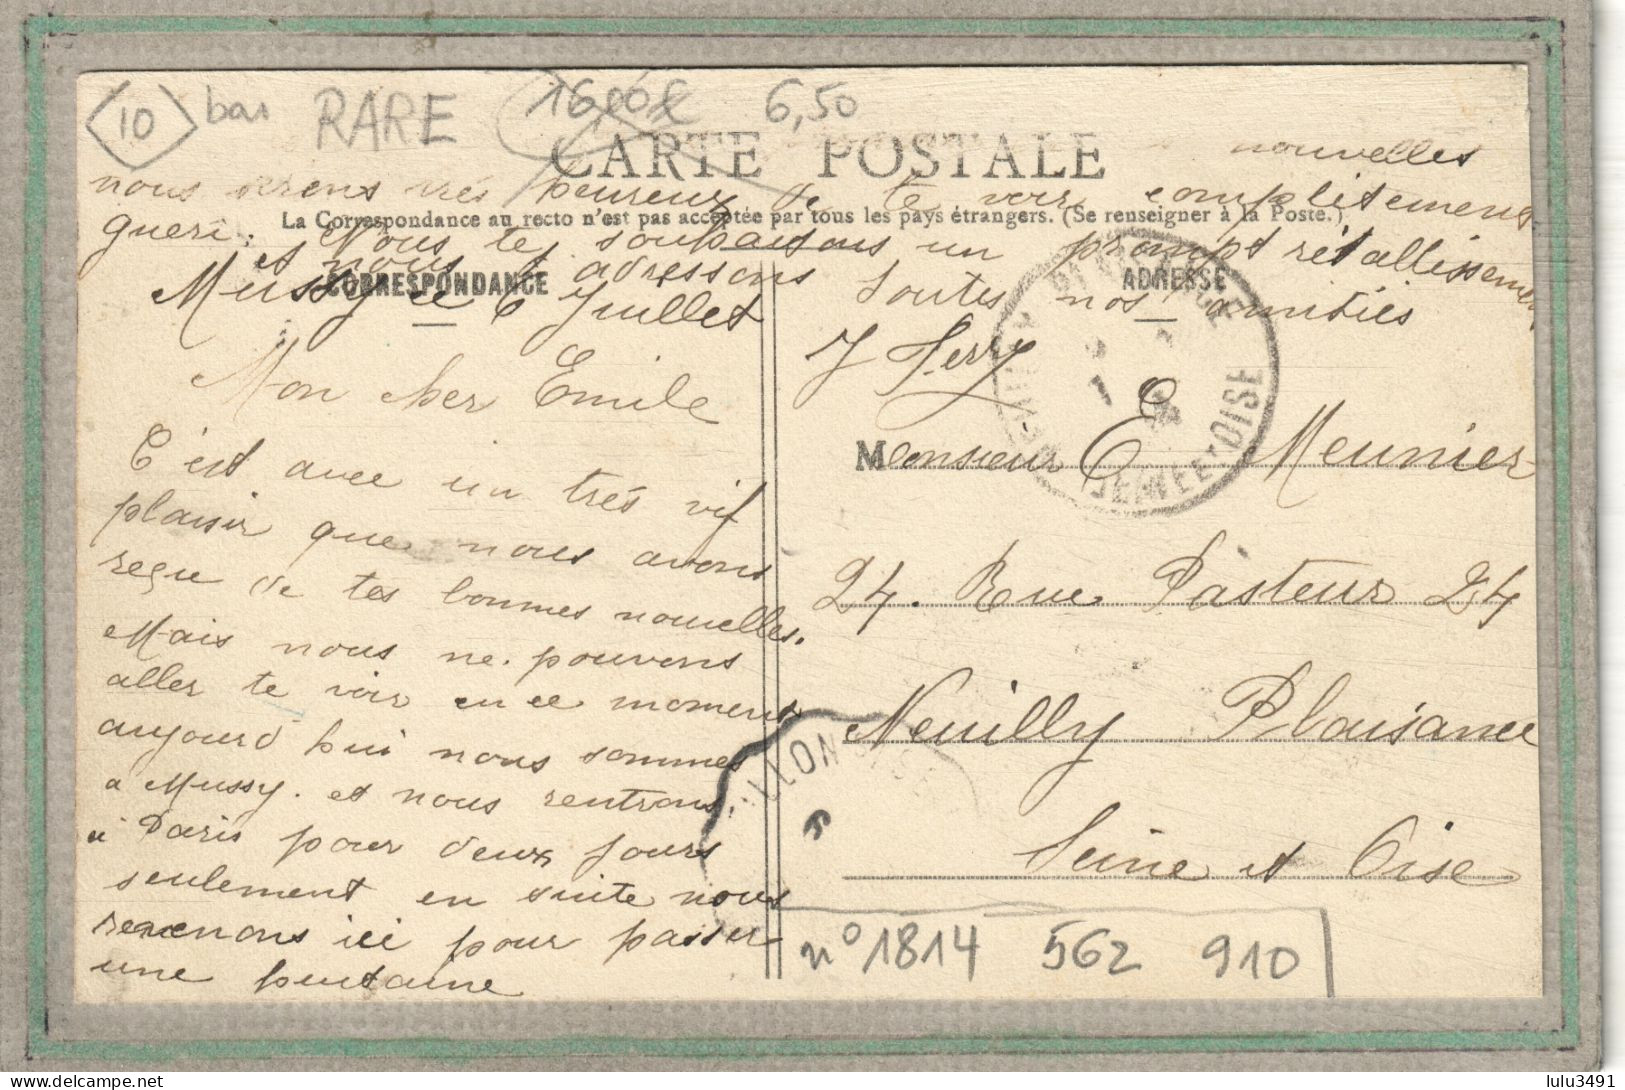 10
bas
RARE
16,00€
6,50
CARTE POSTALE
nouvelles
nous serons très heureux de te voir complitement
La Correspondance au recto n'est pas acceptée par tous les pays étrangers. (Se renseigner à la Poste.)
gueri. Nous te souhaitons un prompt rétablissement
et nous t'adressons toutes nos amitiés
CORRESPONDANCE
ADRESSE
Mussy ce 6 Juillet
Mon cher Emile
C'est avec un très vif
plaisir que nous avons
reçu de tes bonnes nouvelles.
Mais nous ne pouvons
aller te voir en ce moment
aujourd'hui nous sommes
a Mussy. et nous rentrons
a Paris pour deux jours
seulement en suite nous
revenons ici pour passer
une huitaine
Monsieur E Meunier
24. Rue Pasteur 24
Neuilly Plaisance
Seine et Oise
SEINE-ET-OISE
n°1814 562 910
lulu3491